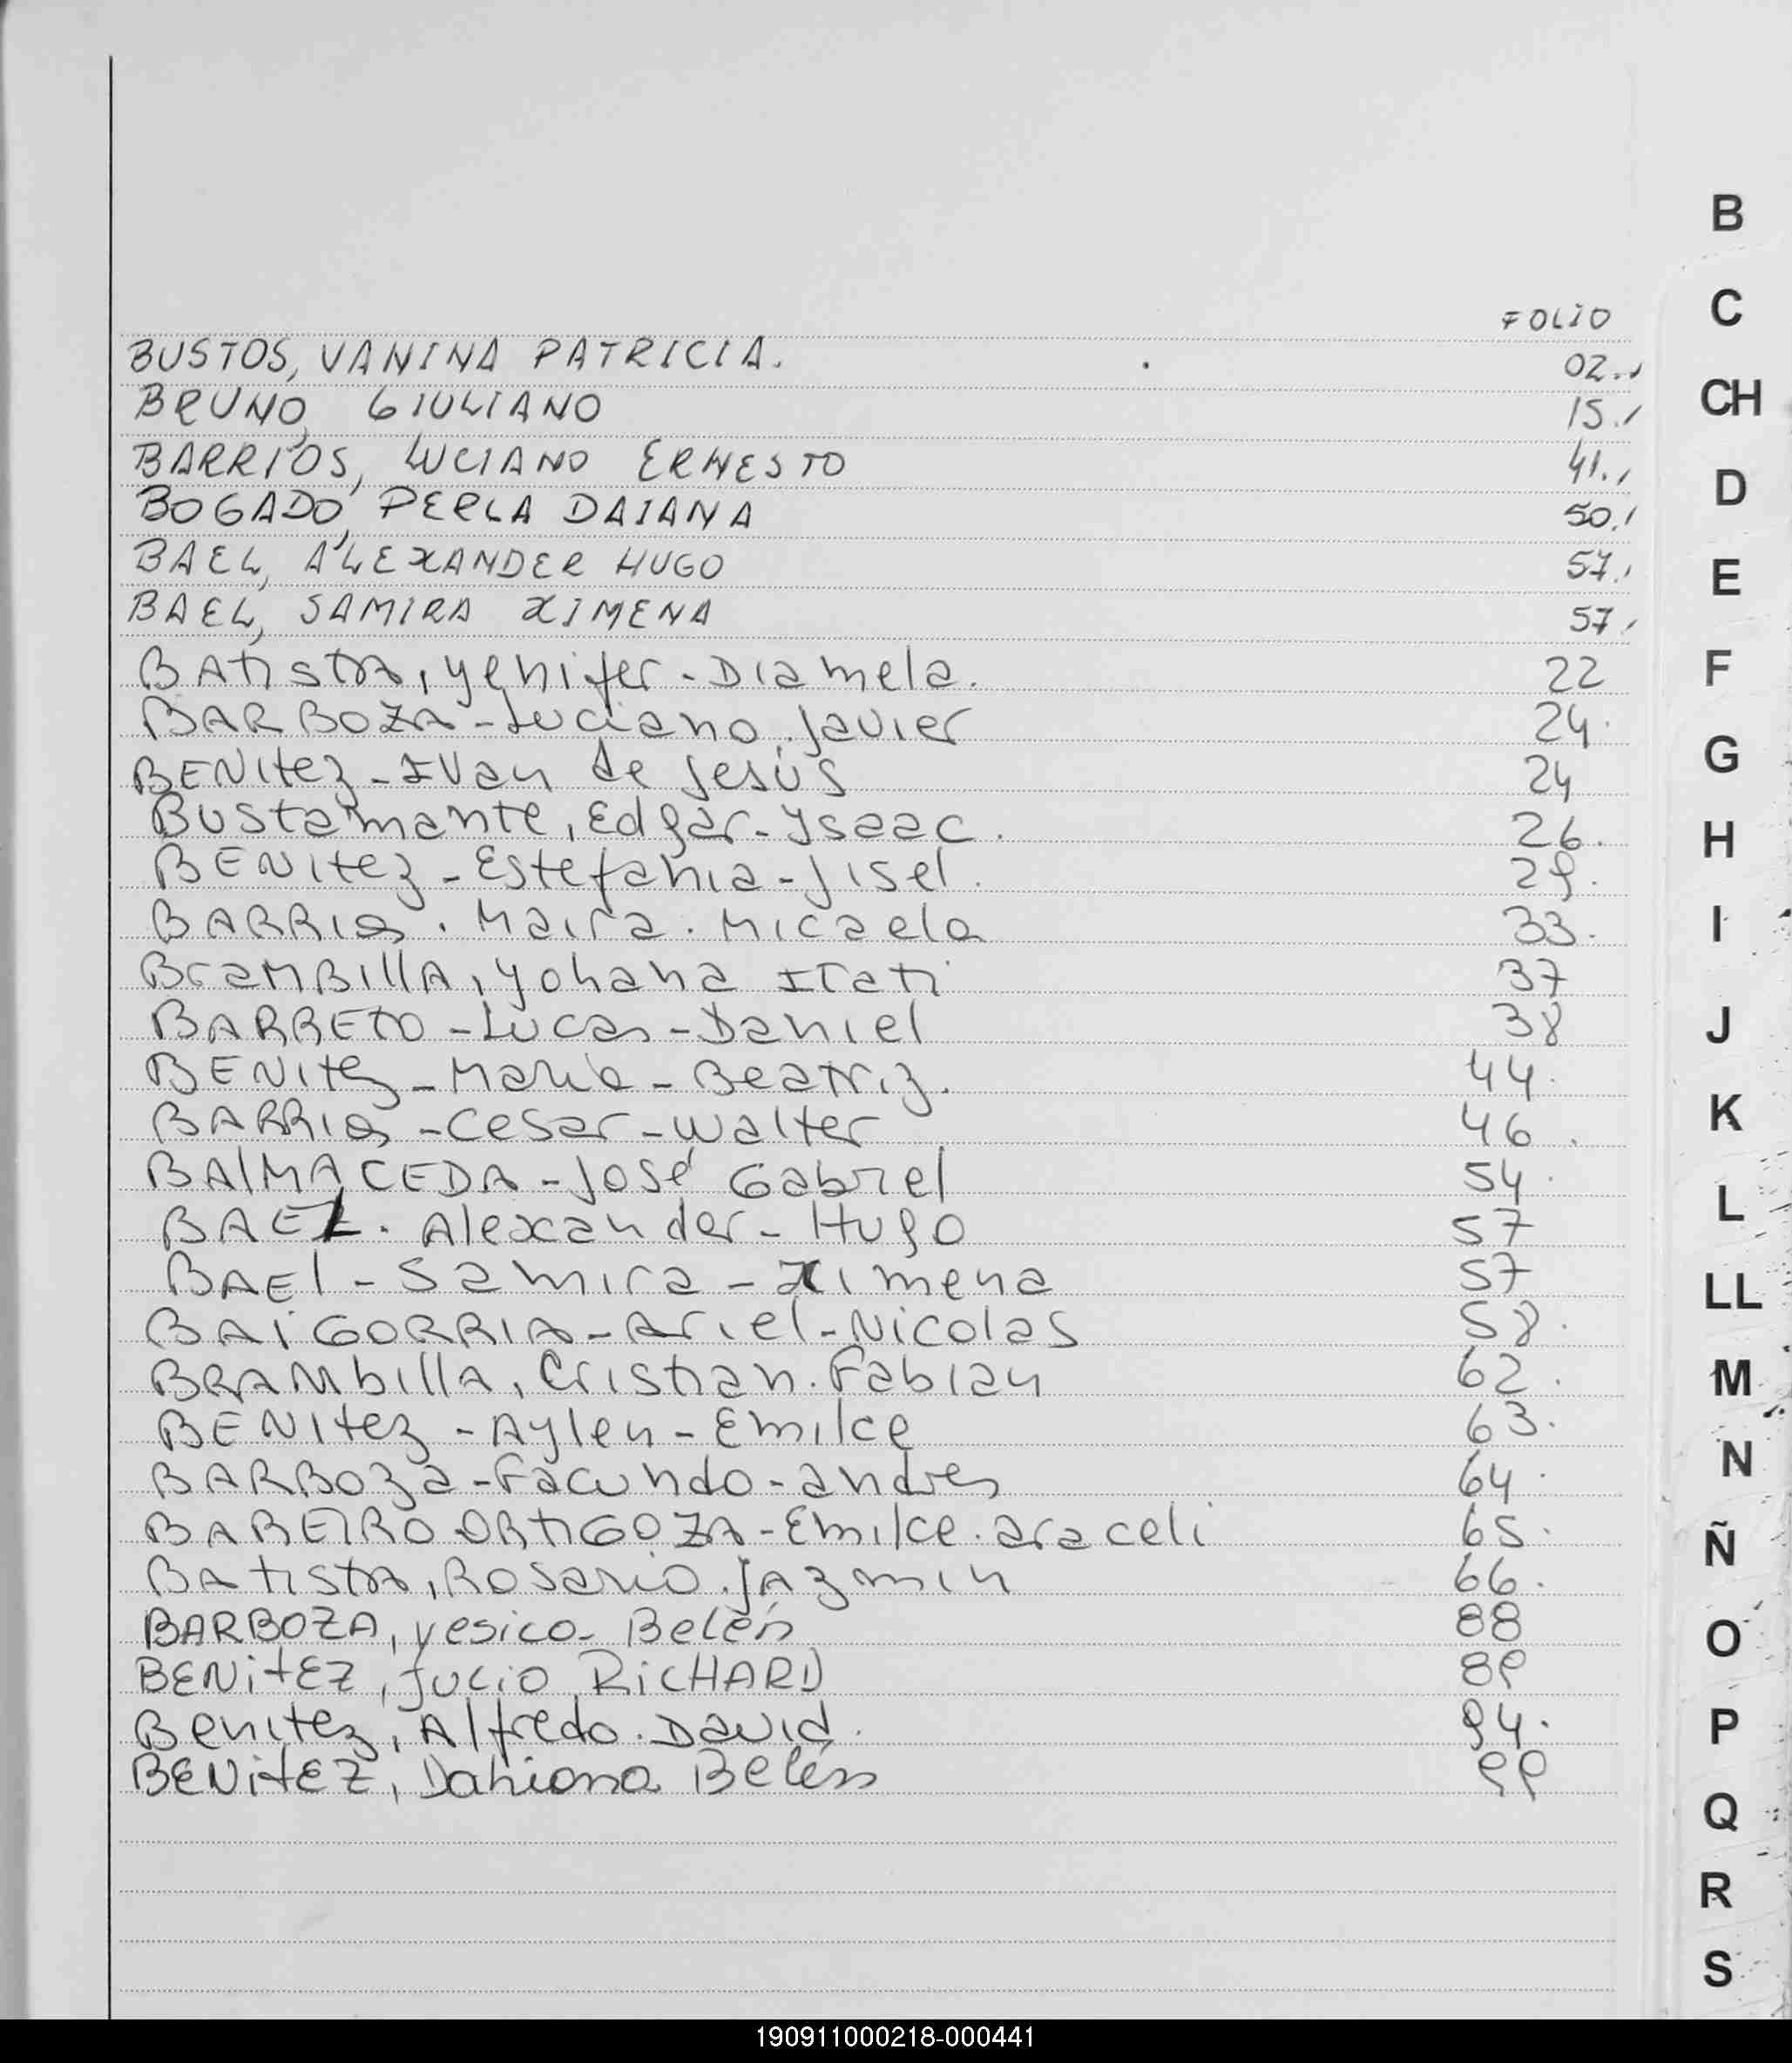 FOLIO
BUSTOS, VANINA PATRICIA. 02.
BRUNO, GIULIANO 15.
BARRIOS, LUCIANO ERNESTO 41.
BOGADO, PERLA DAIANA 50.
BAEL, ALEXANDER HUGO 57.
BAEL, SAMIRA XIMENA 57.
BATISTA, Yenifer - Diamela. 22
BARBOZA - Luciano, Javier 24.
BENITEZ - IVan de Jesús 24
Bustamante, Edgar - Ysaac. 26.
BENITEZ - Estefania - Jisel. 29.
BARRIOS. Maira. Micaela 33.
BraMBIllA, Yohana Itati 37
BARRETO - Lucas - Daniel 38
BENITEZ - Maria - Beatriz. 44.
BARRIOS - Cesar - Walter 46.
BAlMACEDA - José Gabriel 54.
BAEL. Alexander - Hugo 57
BAEl - Samira - Ximena 57
BAiGORRIA - Ariel - Nicolas 58.
BRAMbillA, Cristian. Fabian 62.
BENITEZ - Aylen - Emilce 63.
BARBOza - Facundo - andres 64.
BAREIRO ORTIGOZA - Emilce. araceli 65.
BAtistA, Rosario. JAzmin 66.
BARBOZA, yesica - Belén 88
BENitEZ, Julio RiCHARD 89
Benitez, Alfredo. David. 94.
BENitEZ, Dahiana Belén 99
B
C
CH
D
E
F
G
H
I
J
K
L
LL
M
N
Ñ
O
P
Q
R
S
190911000218-000441